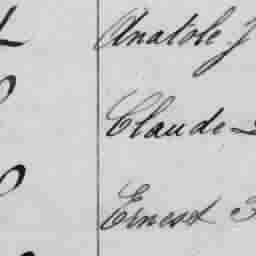 Anatole J
Claude
Ernest